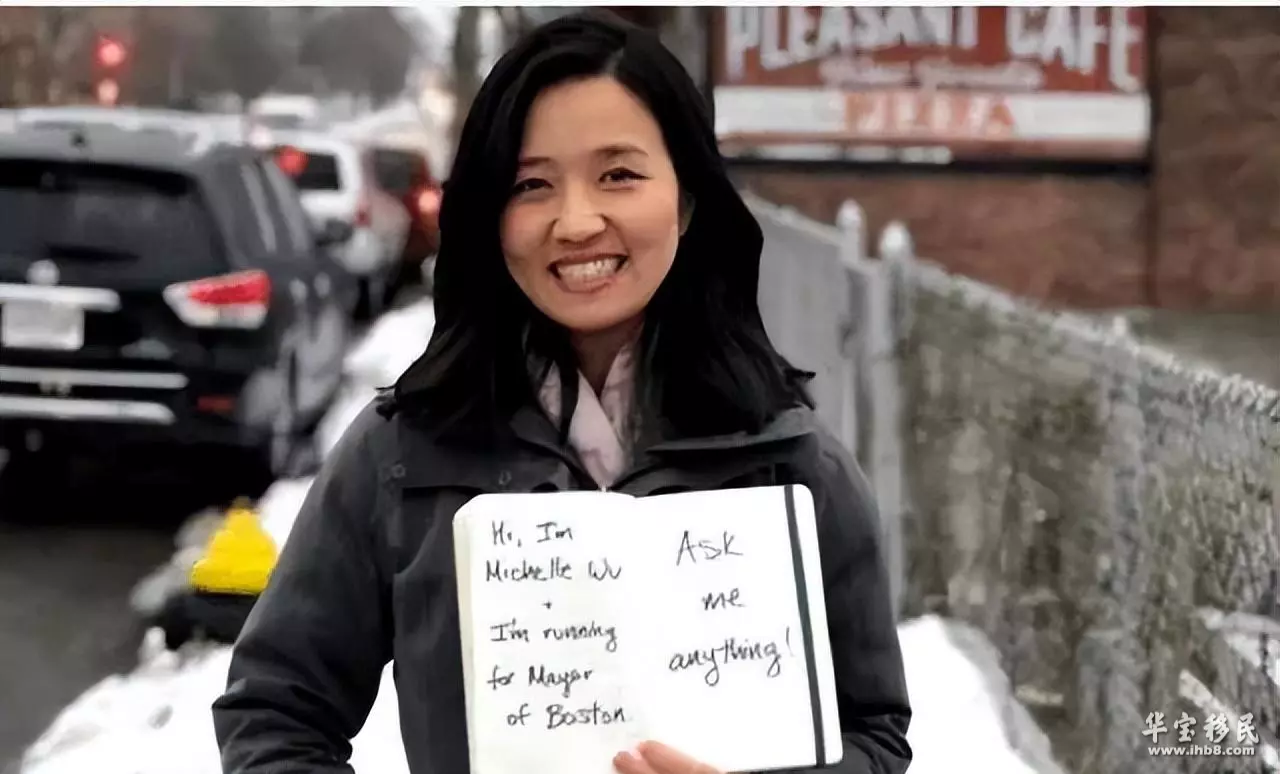 PLEASANT CAFE
Hi, I'm
Michelle Wu
+
I'm running
for Mayor
of Boston.
Ask
me
anything!
华宝移民
www.ihb8.com